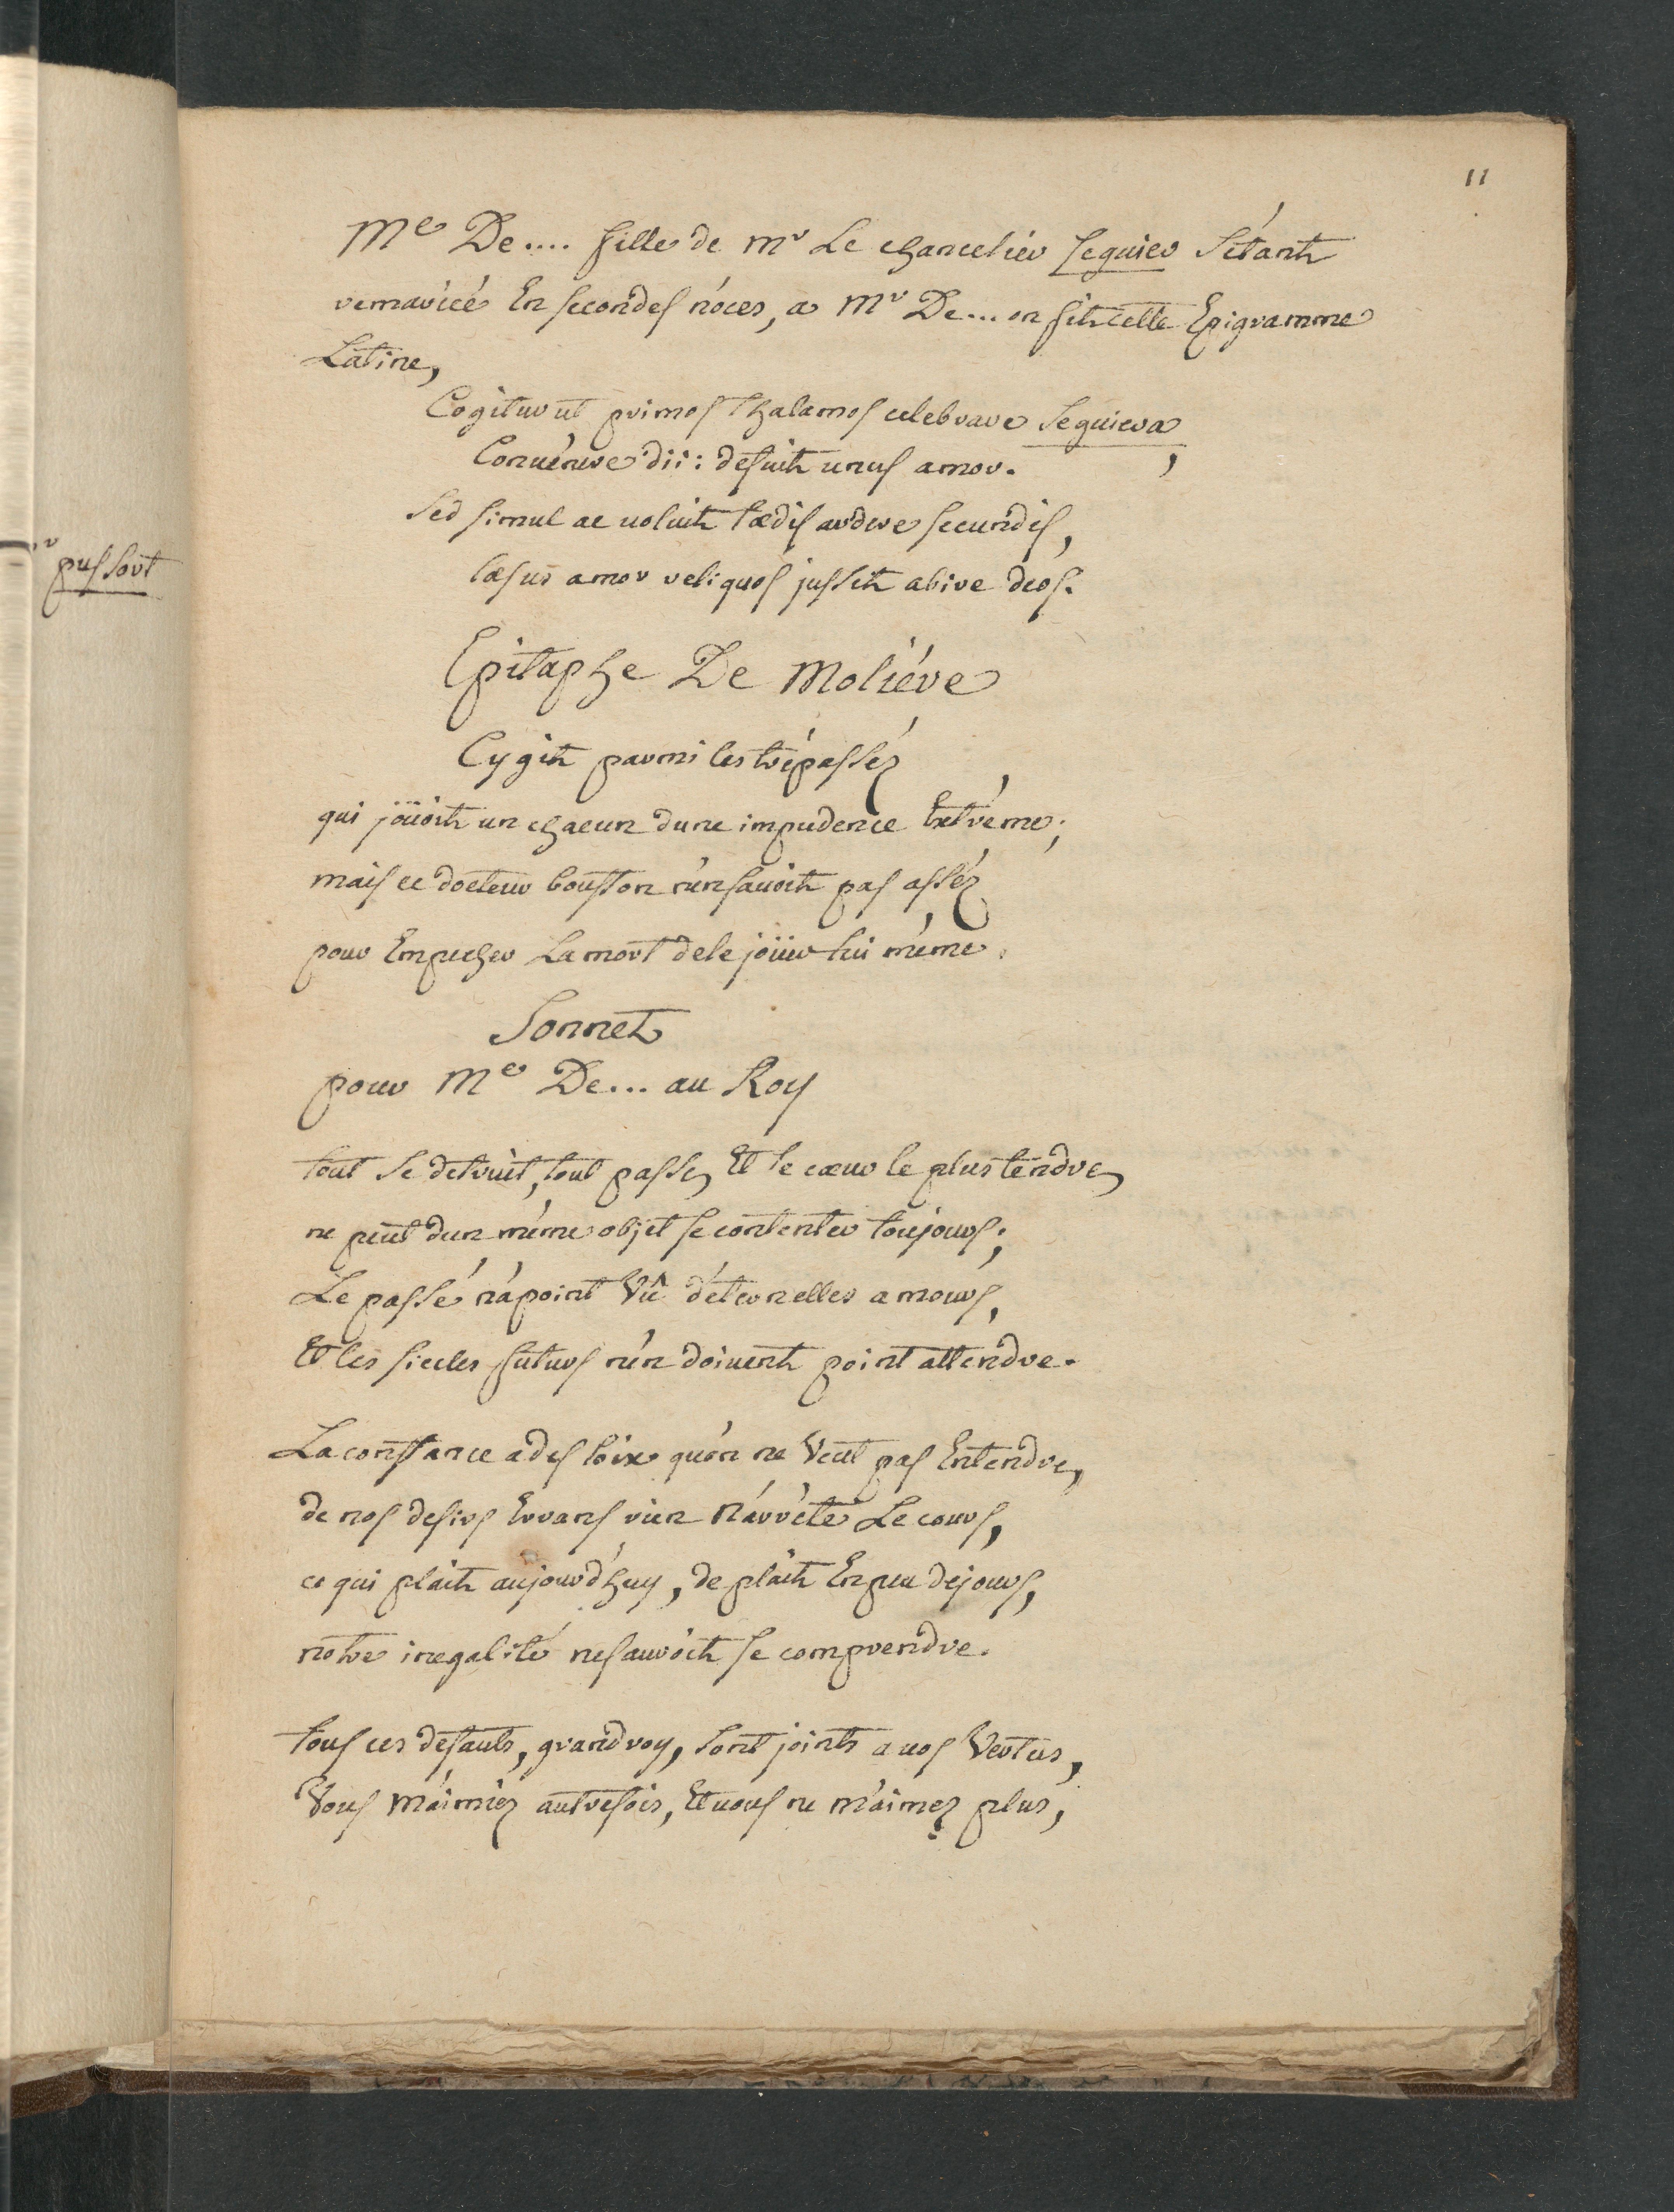 11
Me De.... fille de Mr Le chancelier Seguier s'étant
remariée En secondes nóces, a Mr De... on fit cette Epigramme
Latine,
Cogitur ut primos thalamos celebrare Seguiera,
Conuénere dii: defuit unus amor.
Sed simul ac uoluit tædis ardere secundis,
læsus amor reliquos jussit abire deos.
pussort
Epitaphe De Moliére
Cy gît parmi les trépassés
qui joüoit un chacun dune impudence Extréme;
mais ce docteur bouffon n'en sauoit pas assés
pour Empecher La mort de le joüer lui méme.
Sonnet
pour Me De... au Roy
tout Se detruit, tout passe, Et le cœur le plus tendre,
ne peut dun méme objet se contenter toujours;
Le passé n'a point Vû d'éternelles amours,
Et les siecles futurs n'en doiuent point attendre.
La constance a des loix qu'on ne Veut pas Entendre,
de nos desirs Errans rien N'arrête Le cours,
ce qui plait aujourd'huy, deplait En peu de jours,
notre inegalité ne sauroit se comprendre.
tous ces defauts, grand roy, sont joints a uos Vertus,
Vous M'aimiez autrefois, Et uous ne m'aimez plus,